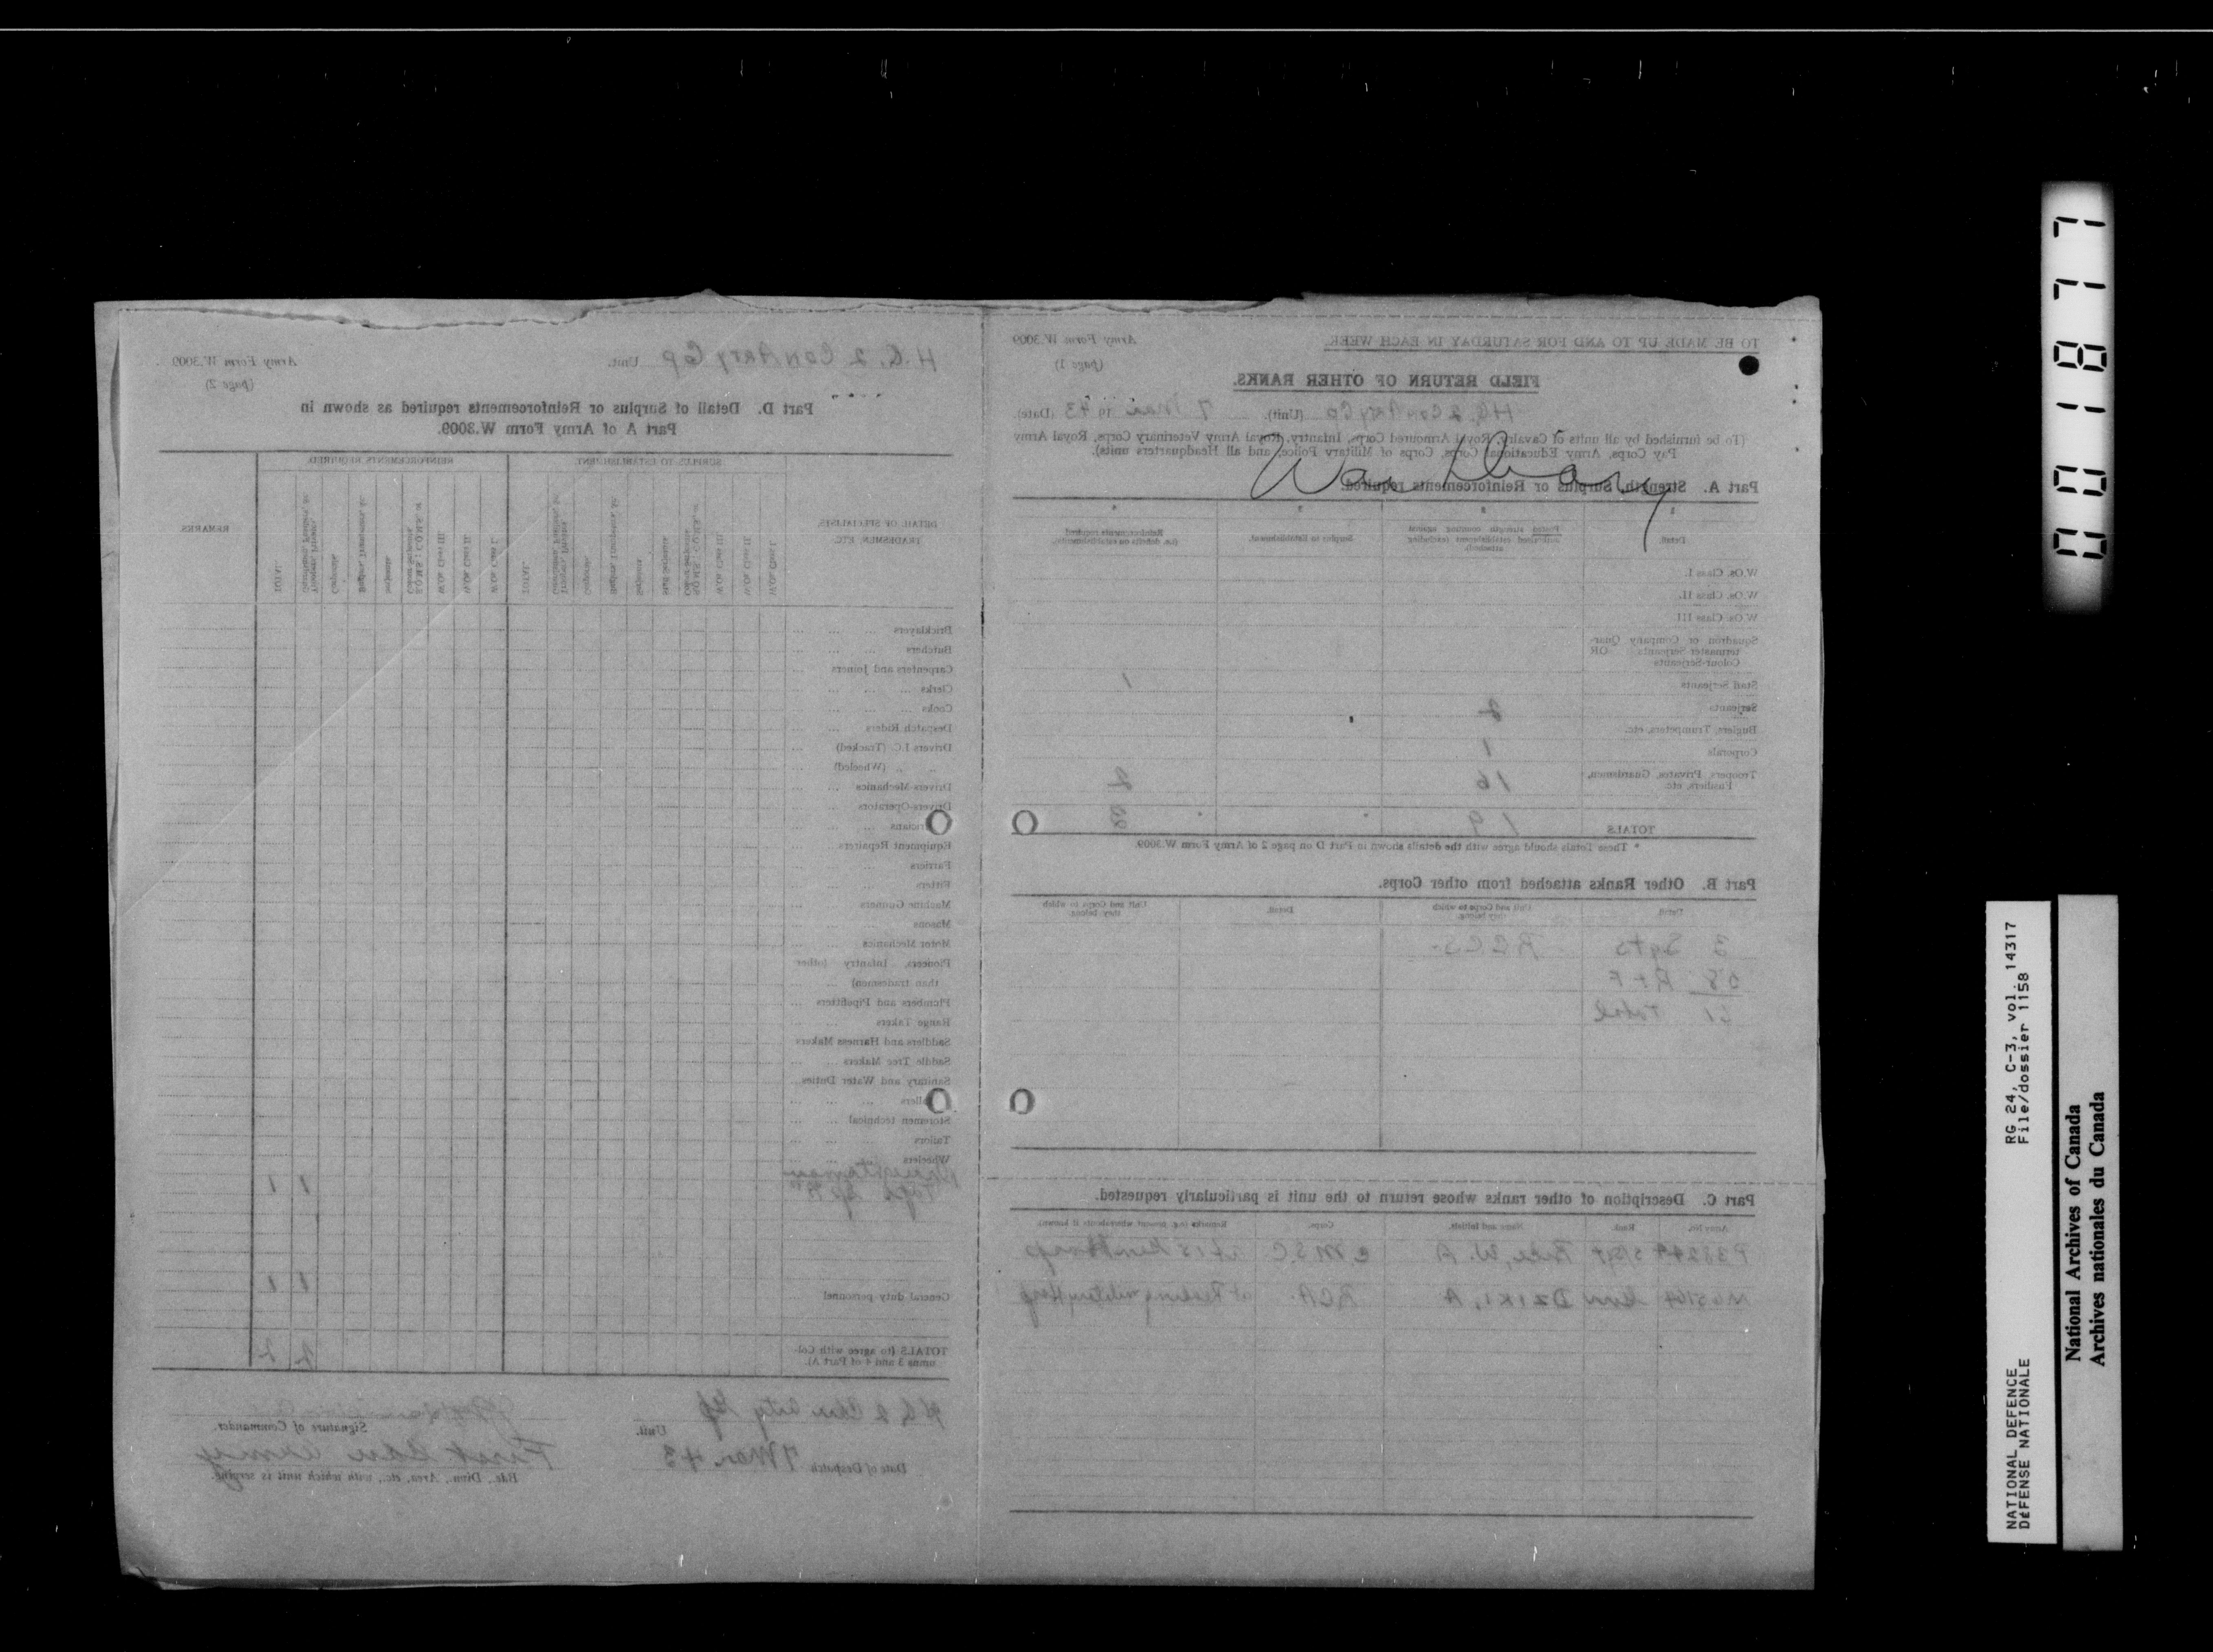 War Diary
TO BE MADE UP TO AND FOR SATURDAY IN EACH WEEK.
Army Form W.3009
(page 1)
FIELD RETURN OF OTHER RANKS.
H.Q. 2 Cdn Arty Gp (Unit). 7 Mar 1943 (Date).
(To be furnished by all units of Cavalry, Royal Armoured Corps, Infantry, Royal Army Veterinary Corps, Royal Army
Pay Corps, Army Educational Corps, Corps of Military Police, and all Headquarters units).
Part A. Strength, Surplus or Reinforcements required.
Detail.
Posted strength counting against authorized establishment (excluding attached).
Surplus to Establishment.
Reinforcements required (i.e. deficits on establishment).
W.Os. Class I.
W.Os. Class II.
W.Os. Class III
Squadron or Company Quartermaster Serjeants OR Colour-Serjeants
Staff Serjeants 1
Serjeants 2
Buglers, Trumpeters, etc.
Corporals 1
Troopers, Privates, Guardsmen, Fusiliers, etc. 16 2
TOTALS 19 3
* These Totals should agree with the details shown in Part D on page 2 of Army Form W.3009.
Part B. Other Ranks attached from other Corps.
Detail Unit and Corps to which they belong. Detail. Unit and Corps to which they belong.
3 Sgts RCCS.
58 R & F
61 Total
Part C. Description of other ranks whose return to the unit is particularly requested.
Army No. Rank. Name and Initials. Corps. Remarks (e.g. present whereabouts if known)
S/Sgt W. A.
Dziki, A RCA.
Army Form W.3009
(page 2)
H.Q. 2 Cdn Arty Gp Unit.
Part D. Detail of Surplus or Reinforcements required as shown in
Part A of Army Form W.3009.
DETAIL OF SPECIALISTS, TRADESMEN, ETC.
SURPLUS TO ESTABLISHMENT.
REINFORCEMENTS REQUIRED.
REMARKS
W.Os. Class I.
W.Os. Class II.
W.Os. Class III.
Staff Serjeants
Serjeants
Buglers, Trumpeters, &c.
Corporals
TOTAL
Bricklayers
Butchers
Carpenters and Joiners
Clerks
Cooks
Despatch Riders
Drivers I.C. (Tracked)
,, ,, (Wheeled)
Drivers-Mechanics
Drivers-Operators
Equipment Repairers
Farriers
Fitters
Machine Gunners
Masons
Motor Mechanics
Pioneers, Infantry (other
than tradesmen)
Plumbers and Pipefitters
Range Takers
Saddlers and Harness Makers
Saddle Tree Makers
Sanitary and Water Duties
Storemen (technical)
Tailors
Wheelers
Draughtsman
Topo Gp "B" 1 1
General duty personnel 1 1
TOTALS (to agree with Columns 3 and 4 of Part A). 2 2
HQ 2 Cdn Arty Gp Unit.
Signature of Commander.
Date of Despatch 7 Mar. 43
First Cdn Army
Bde., Divn., Area, etc., with which unit is serving.
001877
RG 24, C-3, vol. 14317
File/dossier 1158
NATIONAL DEFENCE
DÉFENSE NATIONALE
National Archives of Canada
Archives nationales du Canada